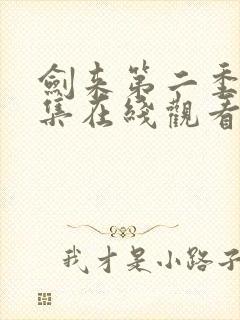 劍来第二季
集在綫觀看
我才是小路子